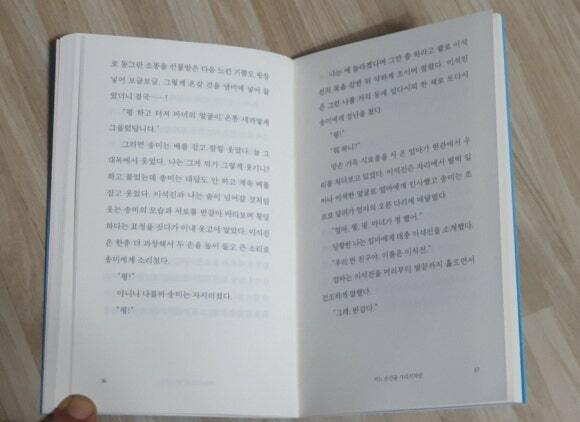 로 동그란 소똥을 선물받은 다음 느낀 기쁨도 왕창
넣어 보글보글, 그렇게 온갖 것을 냄비에 넣어 끓
였더니 결국……!
"펑 하고 터져 마녀의 얼굴이 온통 새까맣게
그을렸답니다."
그러면 송미는 배를 잡고 깔깔 웃었다. 늘 그
대목에서 웃었다. 나는 그게 뭐가 그렇게 웃기니?
하고 물었는데 송미는 대답도 안 하고 계속 배를
잡고 웃었다. 이석진과 나는 숨이 넘어갈 것처럼
웃는 송미의 모습과 서로를 번갈아 바라보며 황당
하다는 표정을 짓다가 이내 웃고야 말았다. 이석진
은 한층 더 과장해서 두 손을 높이 들고 큰 소리로
송미에게 소리쳤다.
"펑!"
아니나 다를까 송미는 자지러졌다.
"펑!"
36
나는 얘 놀라겠다며 그만 좀 하라고 팔로 이석
진의 목을 감싼 뒤 약하게 조이며 말했다. 이석진
은 그런 나를 거의 등에 업다시피 한 채로 또다시
송미에게 장난을 쳤다.
"펑!"
"뭐 하니?"
양손 가득 식료품을 사 온 엄마가 현관에서 우
리를 쳐다보고 있었다. 이석진은 자리에서 벌떡 일
어나 어색한 얼굴로 엄마에게 인사했고 송미는 쪼
르르 달려가 엄마의 오른 다리에 매달렸다.
"엄마, 펑, 펑, 마녀가 펑 했어."
당황한 나는 엄마에게 대충 이석진을 소개했다.
"우리 반 친구야. 이름은 이석진."
엄마는 이석진을 머리부터 발끝까지 훑으면서
건조하게 말했다.
"그래, 반갑다."
37